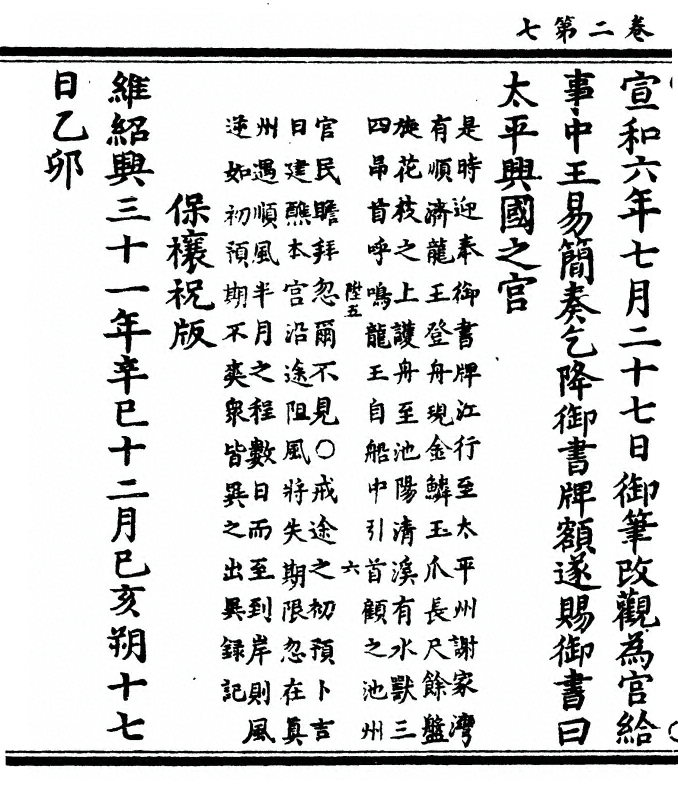 卷二第七
宣和六年七月二十七日御筆改觀為宮給
事中王易簡奏乞降御書牌額遂賜御書曰
太平興國之宮
是時迎奉御書牌江行至太平州謝家灣
有順濟龍王登舟現金鱗玉爪長尺餘盤
旋花枝之上護舟至池陽清溪有水獸三
四昂首呼鳴龍王自船中引首顧之池州
陞五 六
官民瞻拜忽爾不見○戒途之初預卜吉
日建醮本宮沿途阻風將失期限忽在真
州遇順風半月之程數日而至到岸則風
逆如初預期不爽衆皆異之出異録記
保禳祝版
維紹興三十一年辛巳十二月己亥朔十七
日乙卯